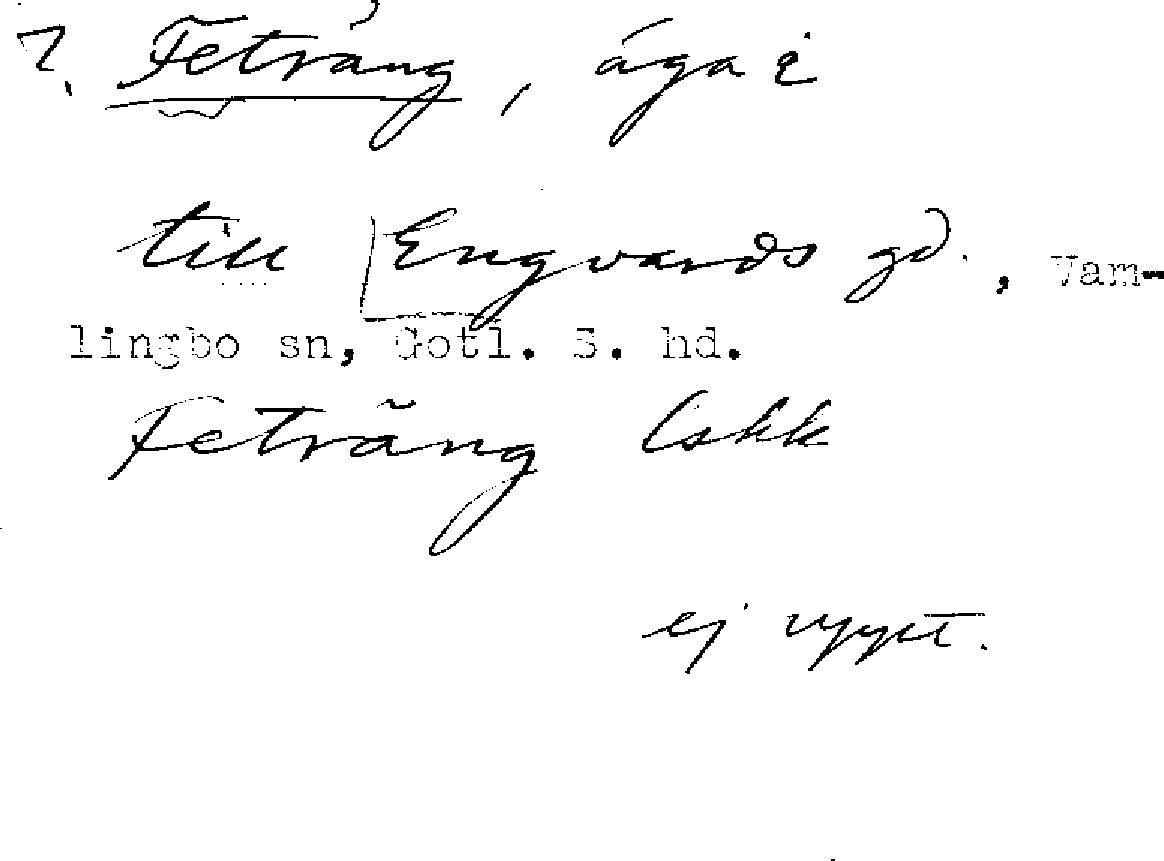 7. Feträng, äga i
till Engvards gd., Vam-
lingbo sn, Gotl. S. hd.
Feträng Cskk
ej uppt.